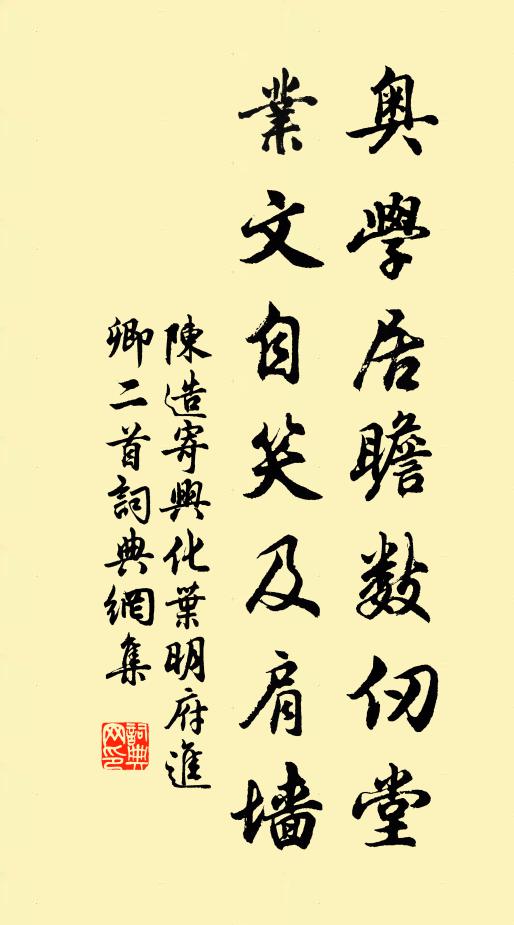 奥學居瞻數仞堂
業文自笑及肩墻
陳造寄興化葉明府進
卿二首詞典網集
詞典
网印